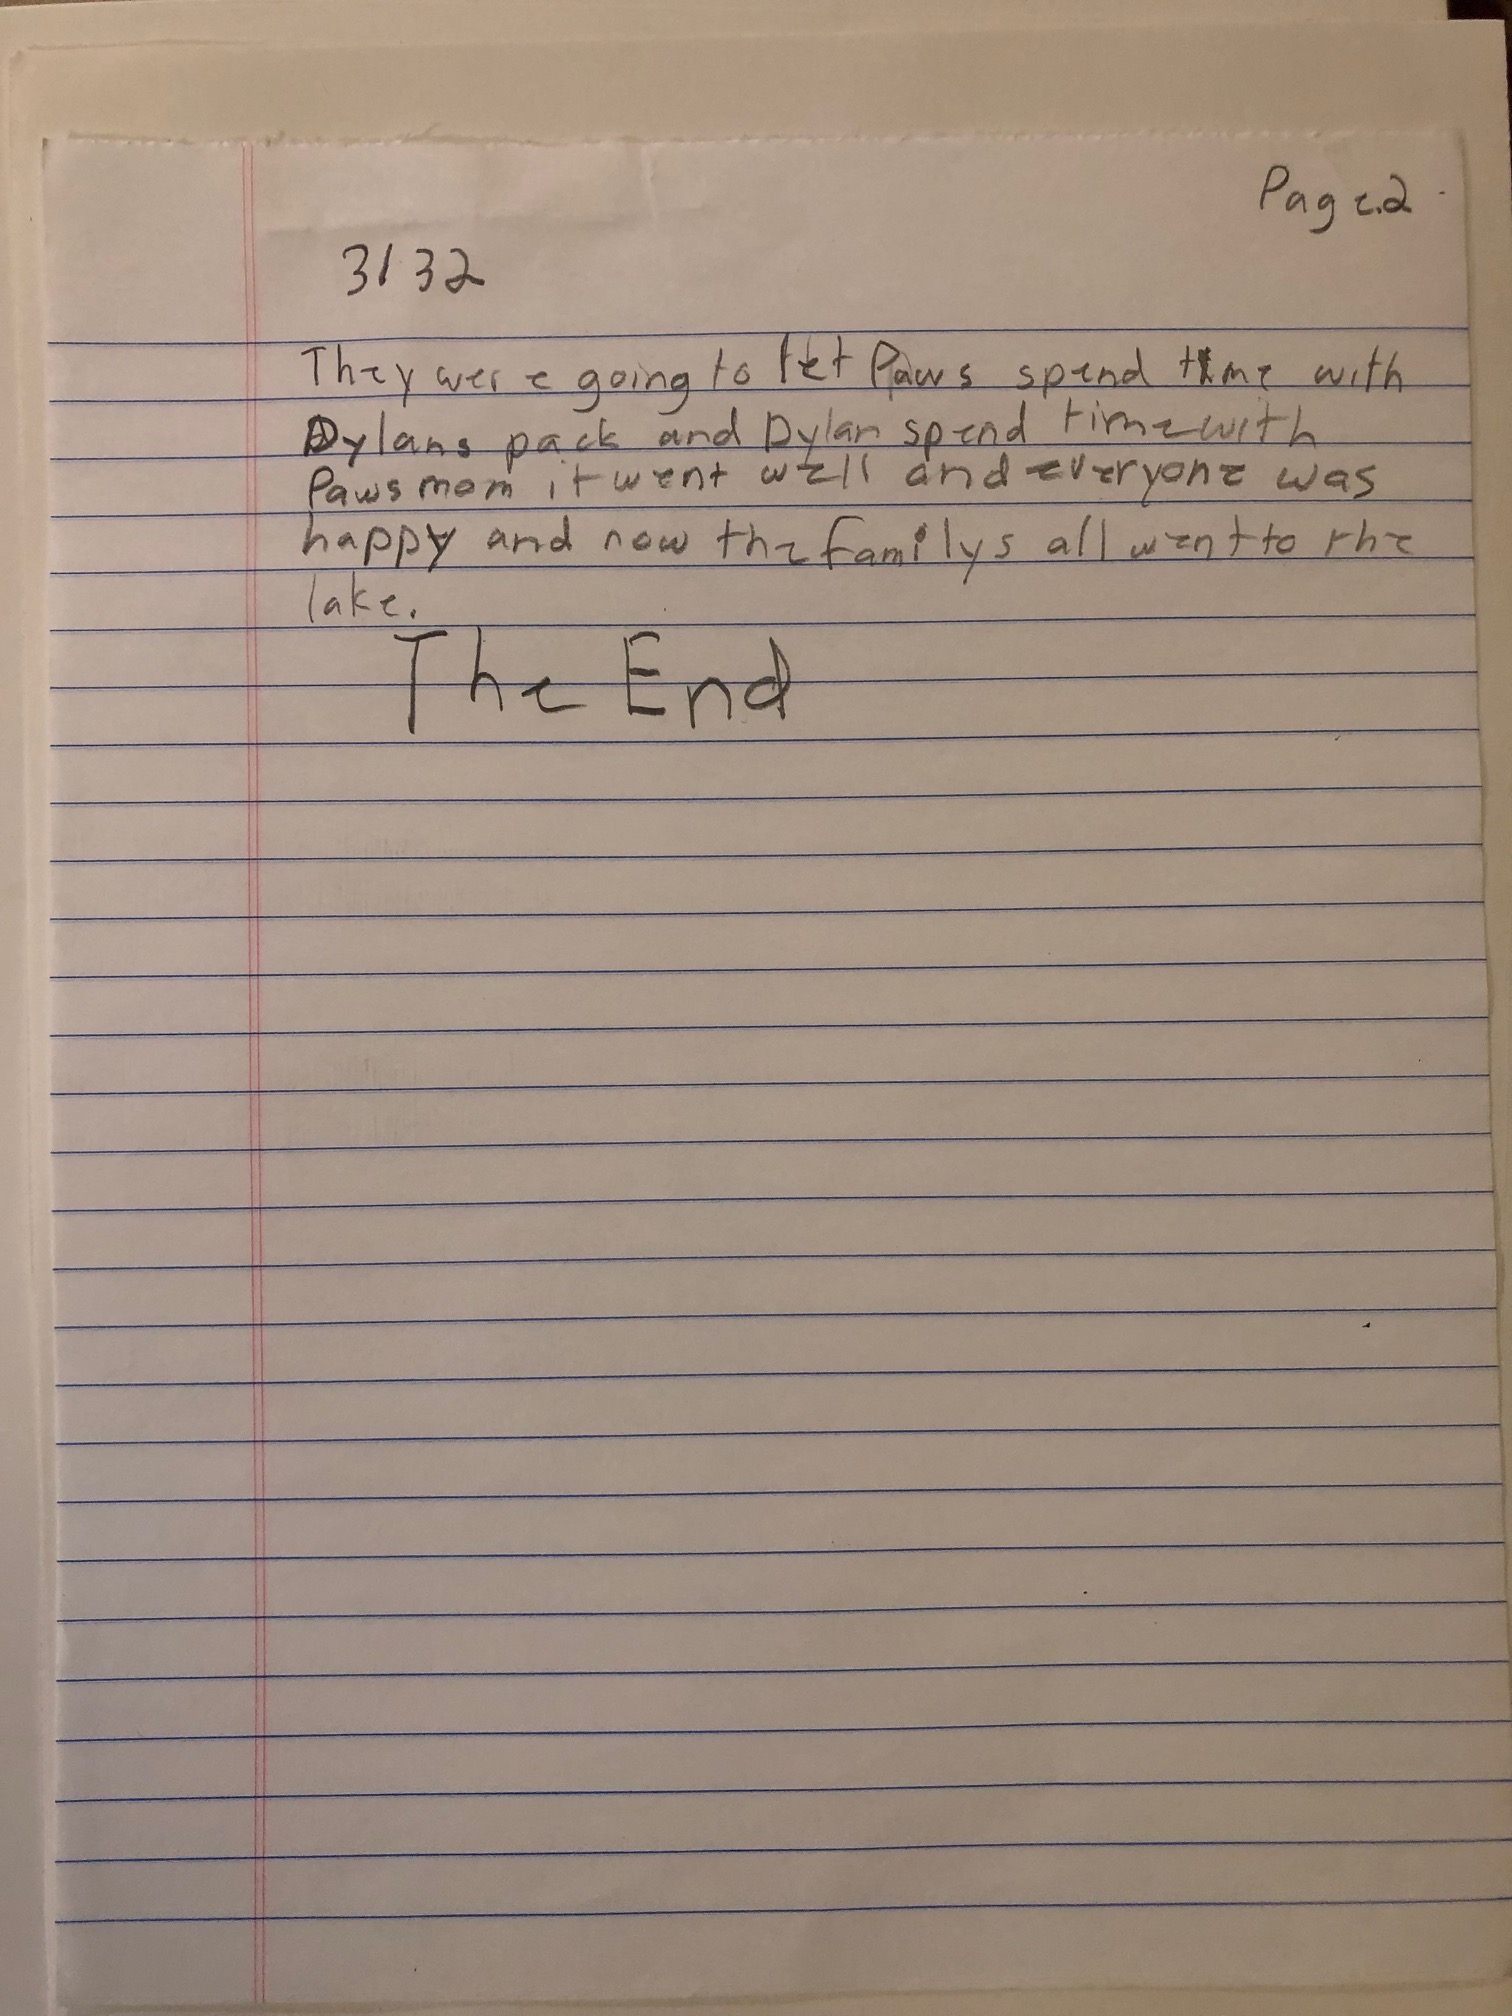 Page.2
3132
They were going to let Paws spend time with
Dylans pack and Dylan spend time with
Paws mom it went well and everyone was
happy and now the familys all went to the
lake.
The End